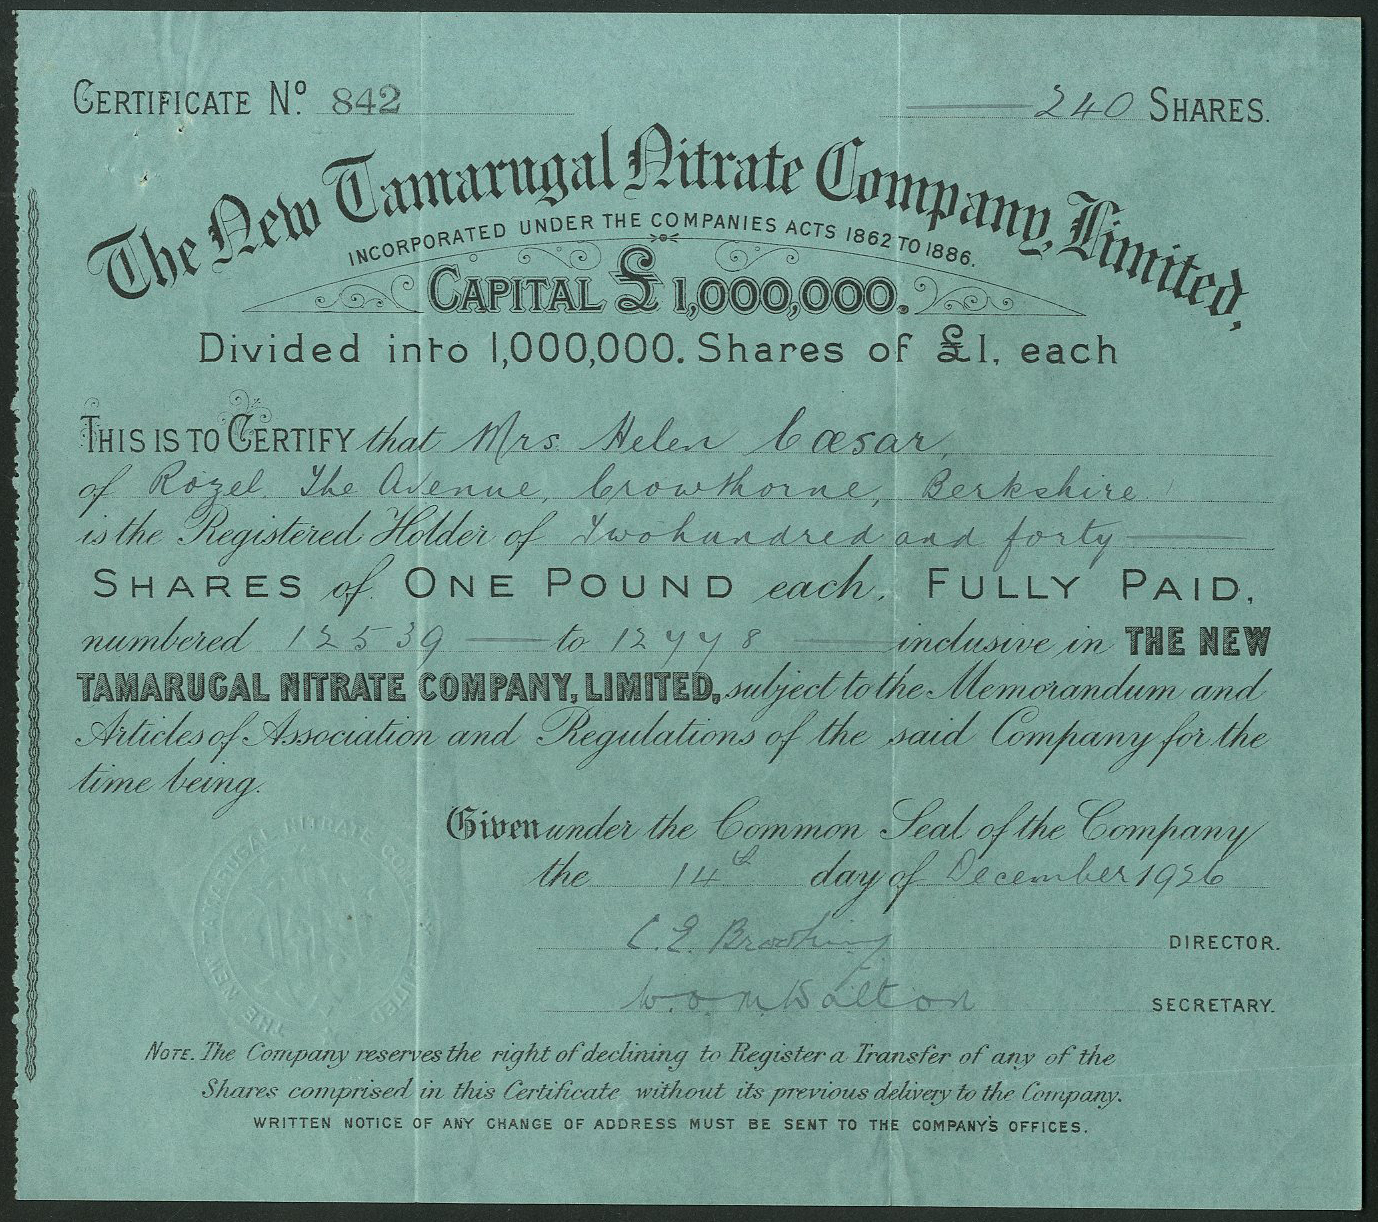 CERTIFICATE No. 842
240 SHARES.
The New Tamarugal Nitrate Company, Limited,
INCORPORATED UNDER THE COMPANIES ACTS 1862 TO 1886.
CAPITAL £1,000,000.
Divided into 1,000,000. Shares of £1, each
THIS IS TO CERTIFY that Mrs Helen Cæsar,
of Rozel. The Avenue, Crowthorne, Berkshire
is the Registered Holder of Two hundred and forty
SHARES of ONE POUND each, FULLY PAID,
numbered 12539 to 12778 inclusive in THE NEW
TAMARUGAL NITRATE COMPANY, LIMITED, subject to the Memorandum and
Articles of Association and Regulations of the said Company for the
time being.
Given under the Common Seal of the Company
the 14th day of December 1926
C. E. DIRECTOR.
W. Dalton SECRETARY.
THE NEW TAMARUGAL NITRATE COMPANY LIMITED
NOTE. The Company reserves the right of declining to Register a Transfer of any of the
Shares comprised in this Certificate without its previous delivery to the Company.
WRITTEN NOTICE OF ANY CHANGE OF ADDRESS MUST BE SENT TO THE COMPANY'S OFFICES.